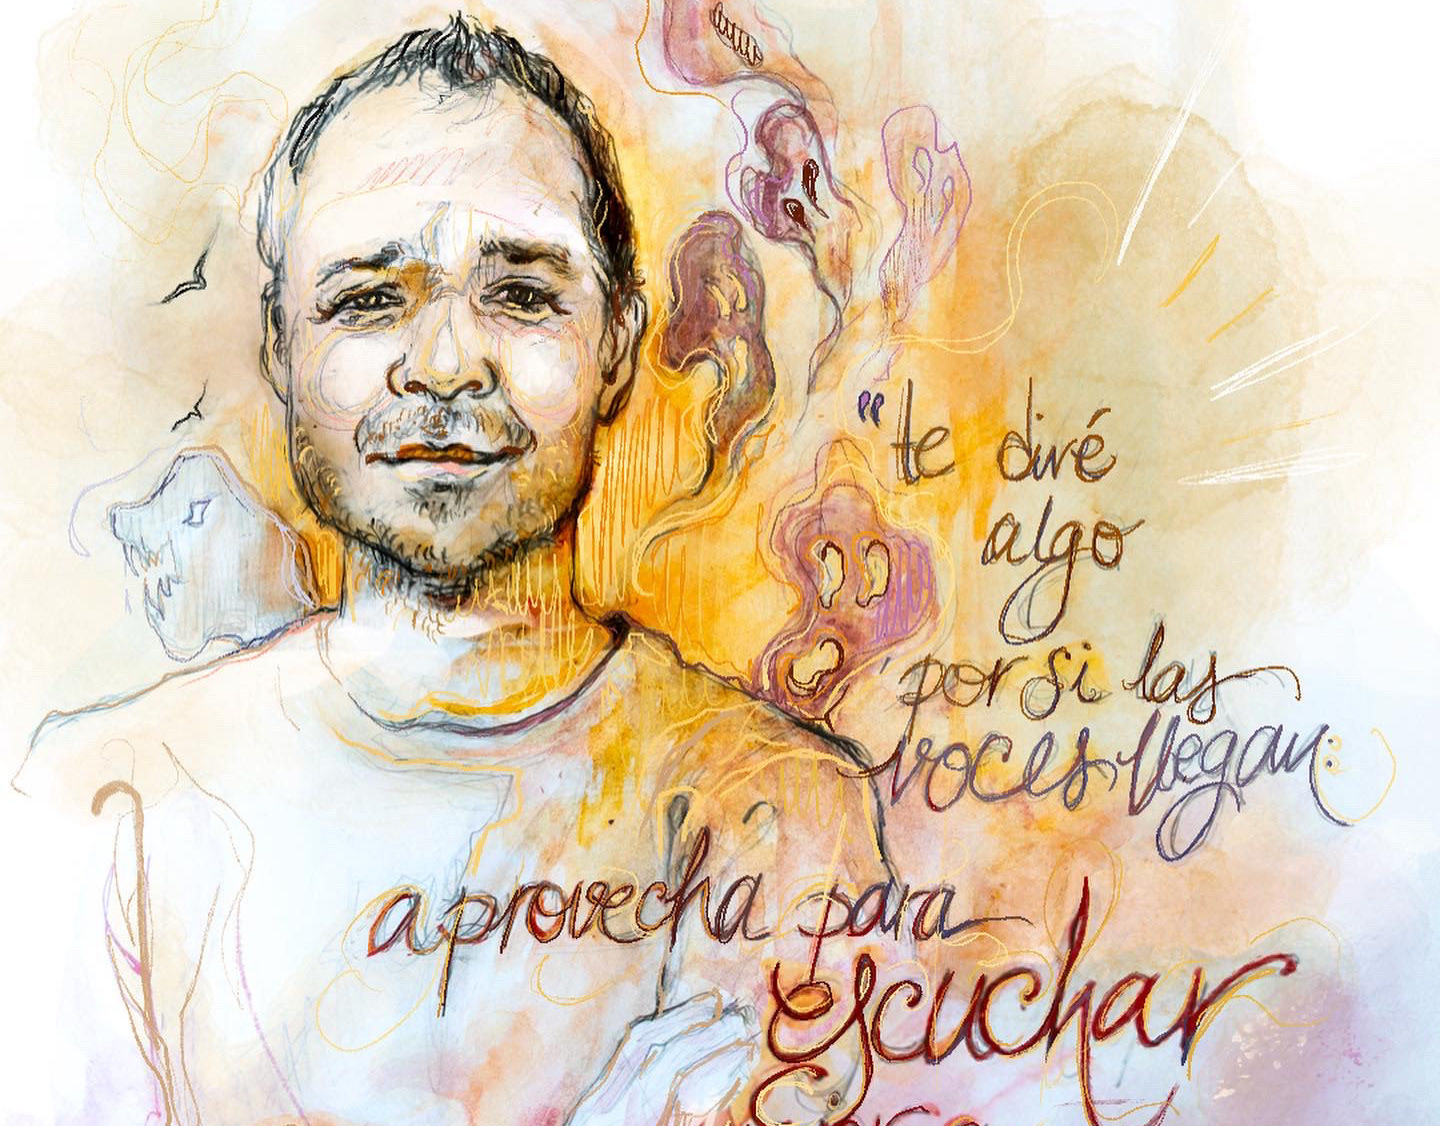 "te diré
algo
por si las
voces llegan:
aprovecha para
escuchar